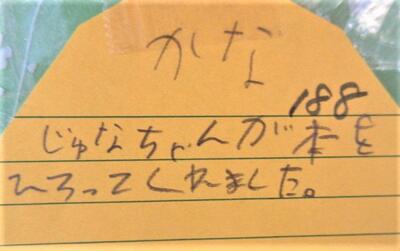 かな
188
じゅなちゃんが本を
ひろってくれました。